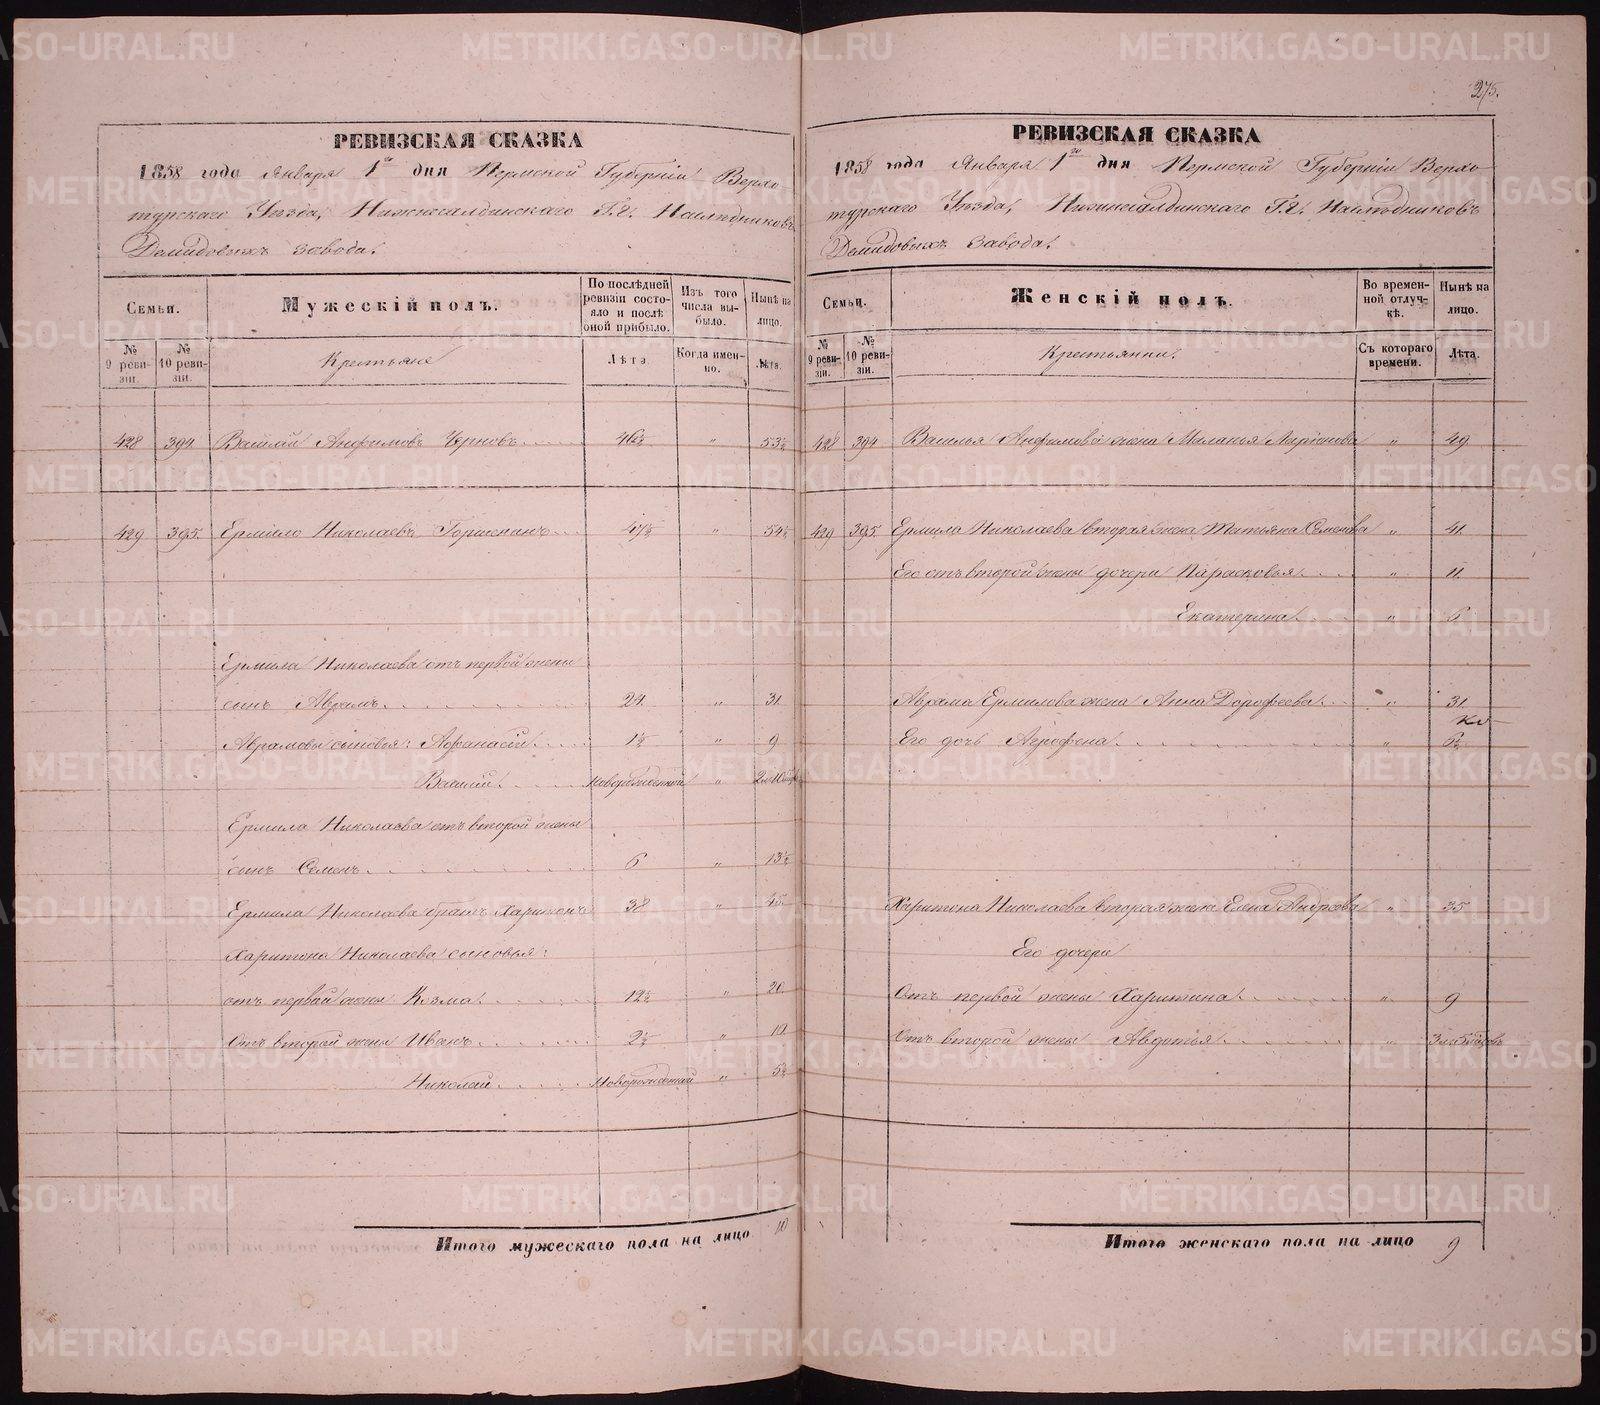 275.
РЕВИЗСКАЯ СКАЗКА
1858 года Января 1го дня Пермской Губерніи Верхо-
турскаго Уѣзда, Нижнесалдинскаго Г.г. Наслѣдниковъ
Демидовыхъ завода.
Семьи.
Мужескій полъ.
По послѣдней ревизіи состо-
яло и послѣ оной прибыло.
Изъ того числа вы-
было.
Нынѣ на лицо.
№ 9 реви-
зіи.
№ 10 реви-
зіи.
Крестьяне
Лѣта.
Когда имен-
но.
Лѣта.
428 394 Василій Анфимовъ Черновъ 46½ " 53½
429 395. Ермило Николаевъ 47½ " 54½
Ермила Николаева отъ первой жены
сынъ Аврамъ 24. " 31.
Аврамовы сыновья: Афанасій 1½ " 9
Василій новорожденной "
Ермила Николаева отъ второй жены
сынъ Семенъ 6 " 13½
Ермила Николаева братъ Харитонъ 38 " 45.
Харитона Николаева сыновья:
отъ первой жены Козма 12½ " 20.
Отъ второй жены Иванъ 2½ " 10.
Николай Новорожденный " 5½
Итого мужескаго пола на лицо 10
РЕВИЗСКАЯ СКАЗКА
1858 года Января 1го дня Пермской Губерніи Верхо-
турскаго Уѣзда, Нижнесалдинскаго Г.г. Наслѣдниковъ
Демидовыхъ завода.
Семьи.
Женскій полъ.
Во времен-
ной отлуч-
кѣ.
Нынѣ на лицо.
№ 9 реви-
зіи.
№ 10 реви-
зіи.
Крестьянки.
Съ котораго времени.
Лѣта.
428 394 Василья Анфимова жена Маланья Ларіонова " 49
429 395. Ермила Николаева вторая жена Татьяна Семенова " 41.
Его отъ второй жены дочери Парасковья " 11.
Екатерина " 6
Аврама Ермилова жена Анна Дорофеева " 31.
Его дочь Агрофена " 6½
Харитона Николаева вторая жена Елена Андреева " 35
Его дочери
Отъ первой жены Харитина " 9
Отъ второй жены Авдотья "
Итого женскаго пола на лицо 9
METRIKI.GASO-URAL.RU